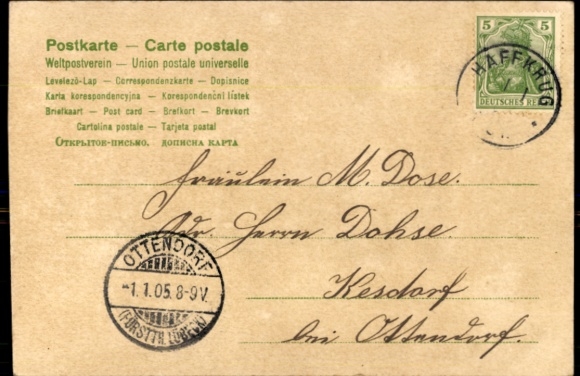 Postkarte — Carte postale
Weltpostverein — Union postale universelle
Levelező-Lap — Correspondenzkarte — Dopisnice
Karta korespondencyjna — Korespondenční lístek
Briefkaart — Post card — Brefkort — Brevkort
Cartolina postale — Tarjeta postal
Открытое-письмо. дописна карта
5 5
HAFFKRUG
DEUTSCHES REI
Fräulein M. Dose.
Adr. Herrn Dohse.
Kesdorf
bei Ottendorf.
OTTENDORF
-1.1.05. 8-9V.
(FÜRSTTH. LÜBECK)